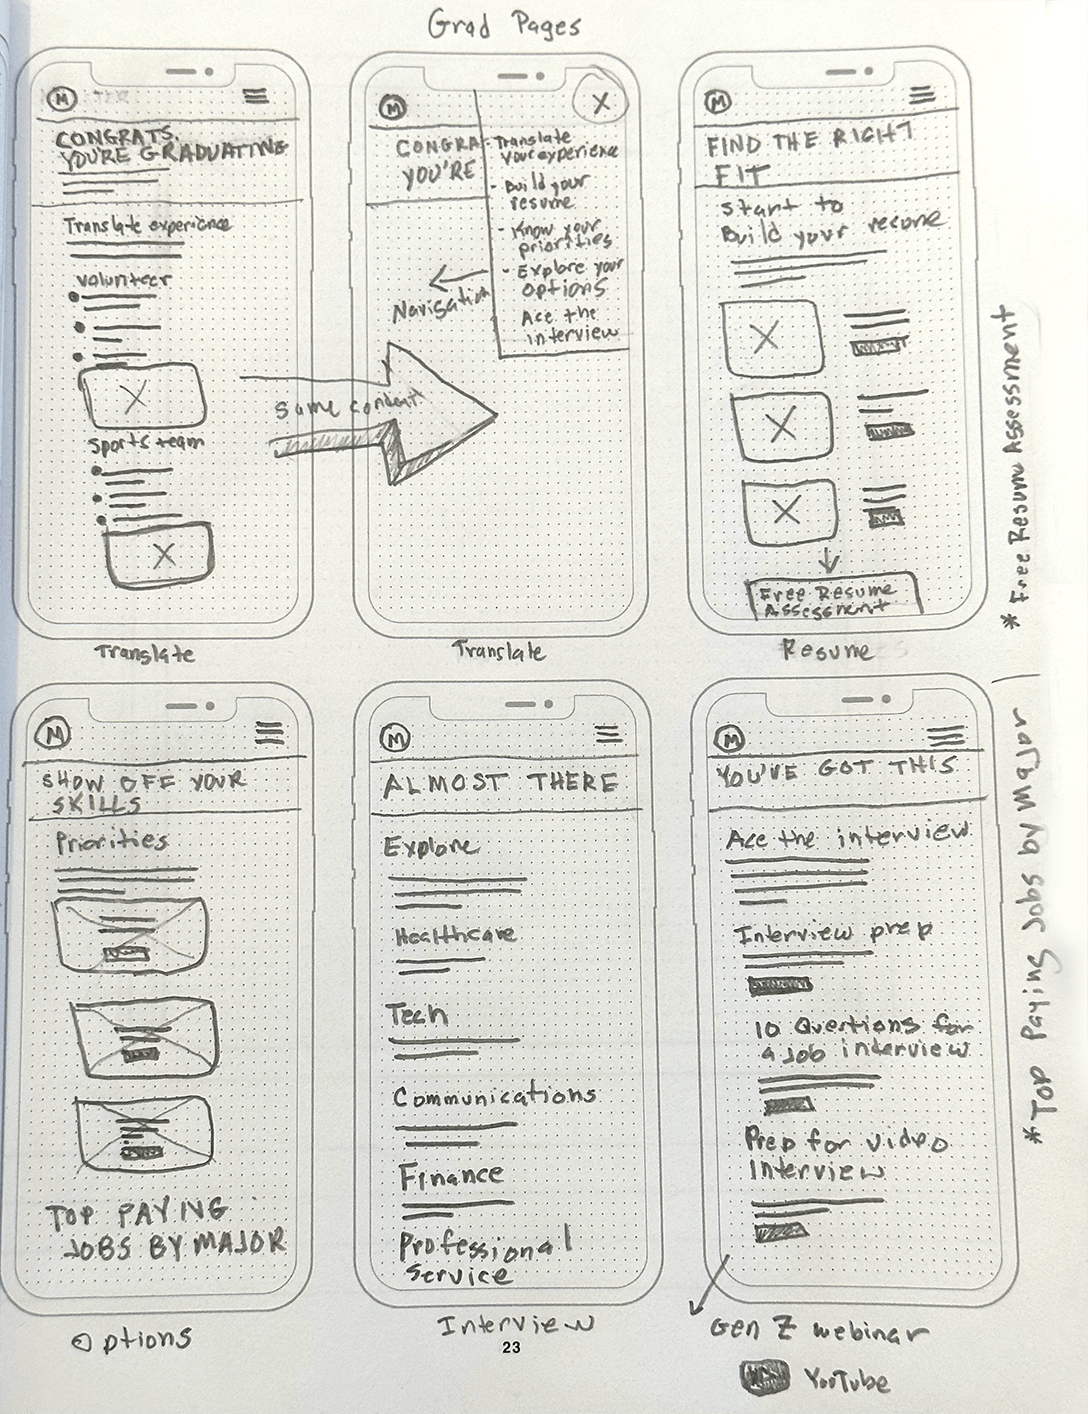 Grad Pages
M
CONGRATS.
YOU'RE GRADUATING
Translate experience
Volunteer
Sports team
Translate
M
X
CONGRA
YOU'RE
- Translate
your experience
- Build your
resume
- Know your
priorities
- Explore your
options
Ace the
interview
Navigation
Same content
Translate
M
FIND THE RIGHT
FIT
Start to
Build your resume
Free Resume
Assessment
Resume
* Free Resume Assessment
M
SHOW OFF YOUR
SKILLS
Priorities
TOP PAYING
JOBS BY MAJOR
Options
M
ALMOST THERE
Explore
Healthcare
Tech
Communications
Finance
Professional
Service
Interview
23
M
YOU'VE GOT THIS
Ace the interview
Interview prep
10 Questions for
a Job interview
Prep for video
interview
Gen Z webinar
YouTube
* Top Paying Jobs by Major